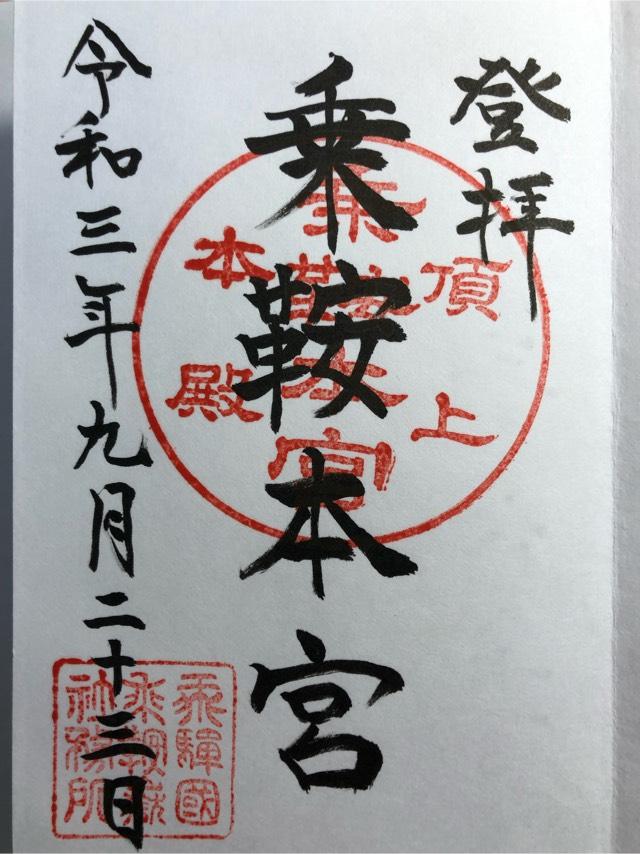 登拝
頂上
乗鞍本宮
本殿
乗鞍本宮
令和三年九月二十三日
飛騨國
乗鞍嶽
社務所